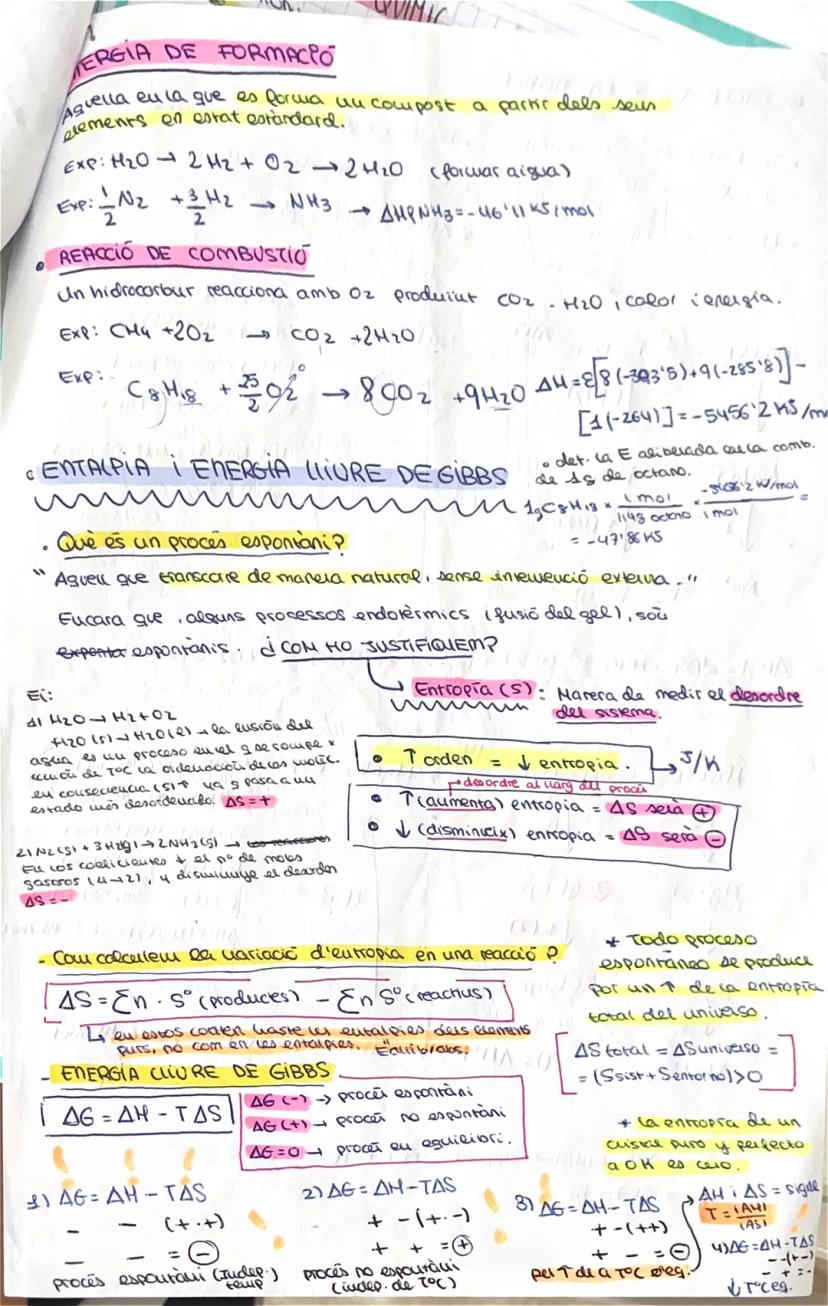 QUÍMIC
ENERGIA DE FORMACIÓ
Aquella en la que es forma un compost a partir dels seus
elements en estat estàndard.
Exp: H2O → 2H2 + O2 → 2H2O (formar aigua)
Exp: 1/2 N2 + 3/2 H2 → NH3 → ΔHf NH3 = -46'11 KJ/mol
• REACCIÓ DE COMBUSTIÓ
Un hidrocarbur reacciona amb O2 produint CO2 - H2O i calor i energia.
Exp: CH4 + 2O2 → CO2 + 2H2O
Exp: C8H18 + 25/2 O2 → 8CO2 + 9H2O ΔH = Σ[8(-393'5)+9(-285'8)] -
[1(-264)] = -5456'2 KJ/mo
• det. la E alliberada en la comb.
de 1g de octano.
1g C8H18 × 1 mol / 114g octano × -5456'2 KJ/mol / 1 mol =
= -47'86 KJ
ENTALPIA i ENERGIA LLIURE DE GIBBS
• Què és un procés espontàni?
" Aquell que transcorre de manera natural, sense intervenció externa."
Encara que, alguns processos endotèrmics (fusió del gel), són
espontànis. ¿COM HO JUSTIFIQUEM?
Entropía (S): Manera de medir el desordre
del sistema.
Ej:
1) H2O → H2 + O2
H2O (s) → H2O (l) → la fusión del
agua es un proceso en el q se rompe x
acción de TºC la ordenación de las molec.
en consecuencia (S)↑ ya q pasa a un
estado más desordenado. ΔS = +
• ↑ orden = ↓ entropia. → J/K
→ desordre al llarg del procés
• ↑ (aumenta) entropia = ΔS serà +
• ↓ (disminueix) entropia = ΔS serà -
2) N2(g) + 3H2(g) → 2NH3(g) →
En los coeficientes ↓ el nº de moles
gaseosos (4→2), y disminuye el desorden
ΔS = -
- Com calculem la variació d'entropia en una reacció?
ΔS = Σn · Sº (productes) - Σn Sº (reactius)
↳ en estos conten hasta les entalpies dels elements
purs, no com en les entalpies. Equilibrades.
* Todo proceso
espontáneo se produce
por un ↑ de la entropía
total del universo.
ΔS total = ΔSuniverso =
= (Ssist + Sentorno) > 0
- ENERGIA LLIURE DE GIBBS
ΔG = ΔH - TΔS
ΔG (-) → procés espontàni
ΔG (+) → procés no espontàni
ΔG = 0 → procés en equilibri.
* La entropia de un
cristal puro y perfecto
a 0K es cero.
1) ΔG = ΔH - TΔS
- - (+·+)
- - = -
procés espontàni (indep.
temp)
2) ΔG = ΔH - TΔS
+ - (+·-)
+ + = +
procés no espontàni
(indep. de TºC)
3) ΔG = ΔH - TΔS
+ - (++)
+ - = -
per ↑ de a TºC d'eq.
ΔH i ΔS = signe
T = |ΔH| / |ΔS|
4) ΔG = ΔH - TΔS
- - (+-)
- + = -
↓ TºC eq.